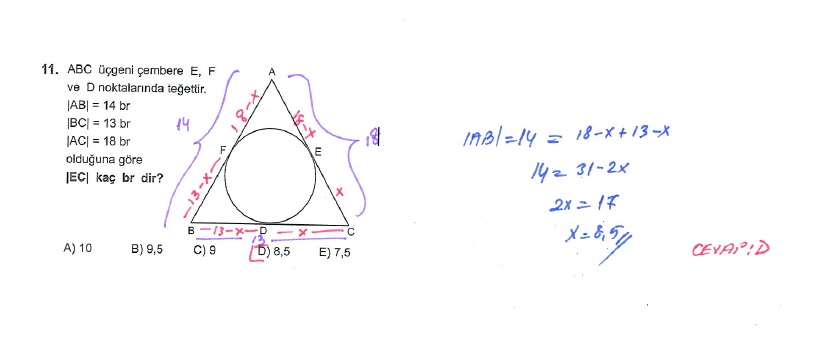 11. ABC üçgeni çembere E, F
ve D noktalarında teğettir.
|AB| = 14 br
|BC| = 13 br
|AC| = 18 br
olduğuna göre
|EC| kaç br dir?
A
14
18-x
18-x
18
F
E
13-x
x
B
13-x
D
x
C
13
A) 10 B) 9,5 C) 9 D) 8,5 E) 7,5
|AB|=14 = 18-x+13-x
14 = 31-2x
2x = 17
x = 8,5//
CEVAP:D